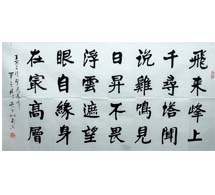 飛來峰上
千尋塔聞
說雞鳴見
日昇不畏
浮雲遮望
眼自緣身
在㝡高層